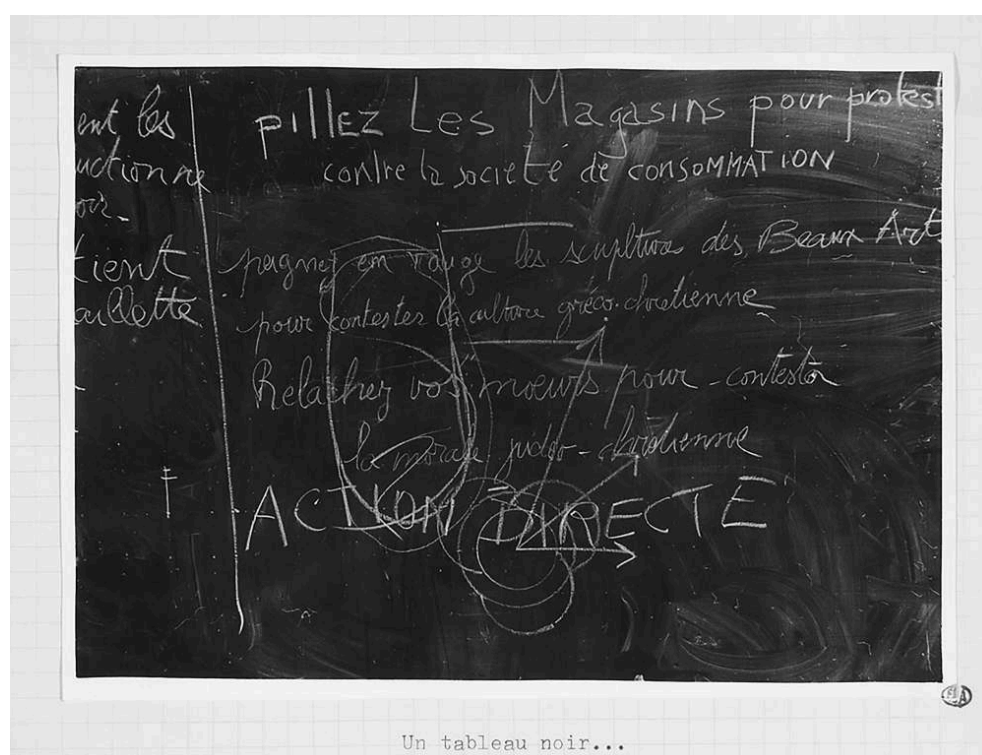 ent les
uctionne
oir.
tient
aillette
pillez Les Magasins pour protest
contre la société de consommation
peignez en rouge les sculptures des Beaux Arts
pour contester la culture gréco-chrétienne
Relachez vos moeurs pour contester
la morale judéo-chrétienne
ACTION DIRECTE
Un tableau noir...